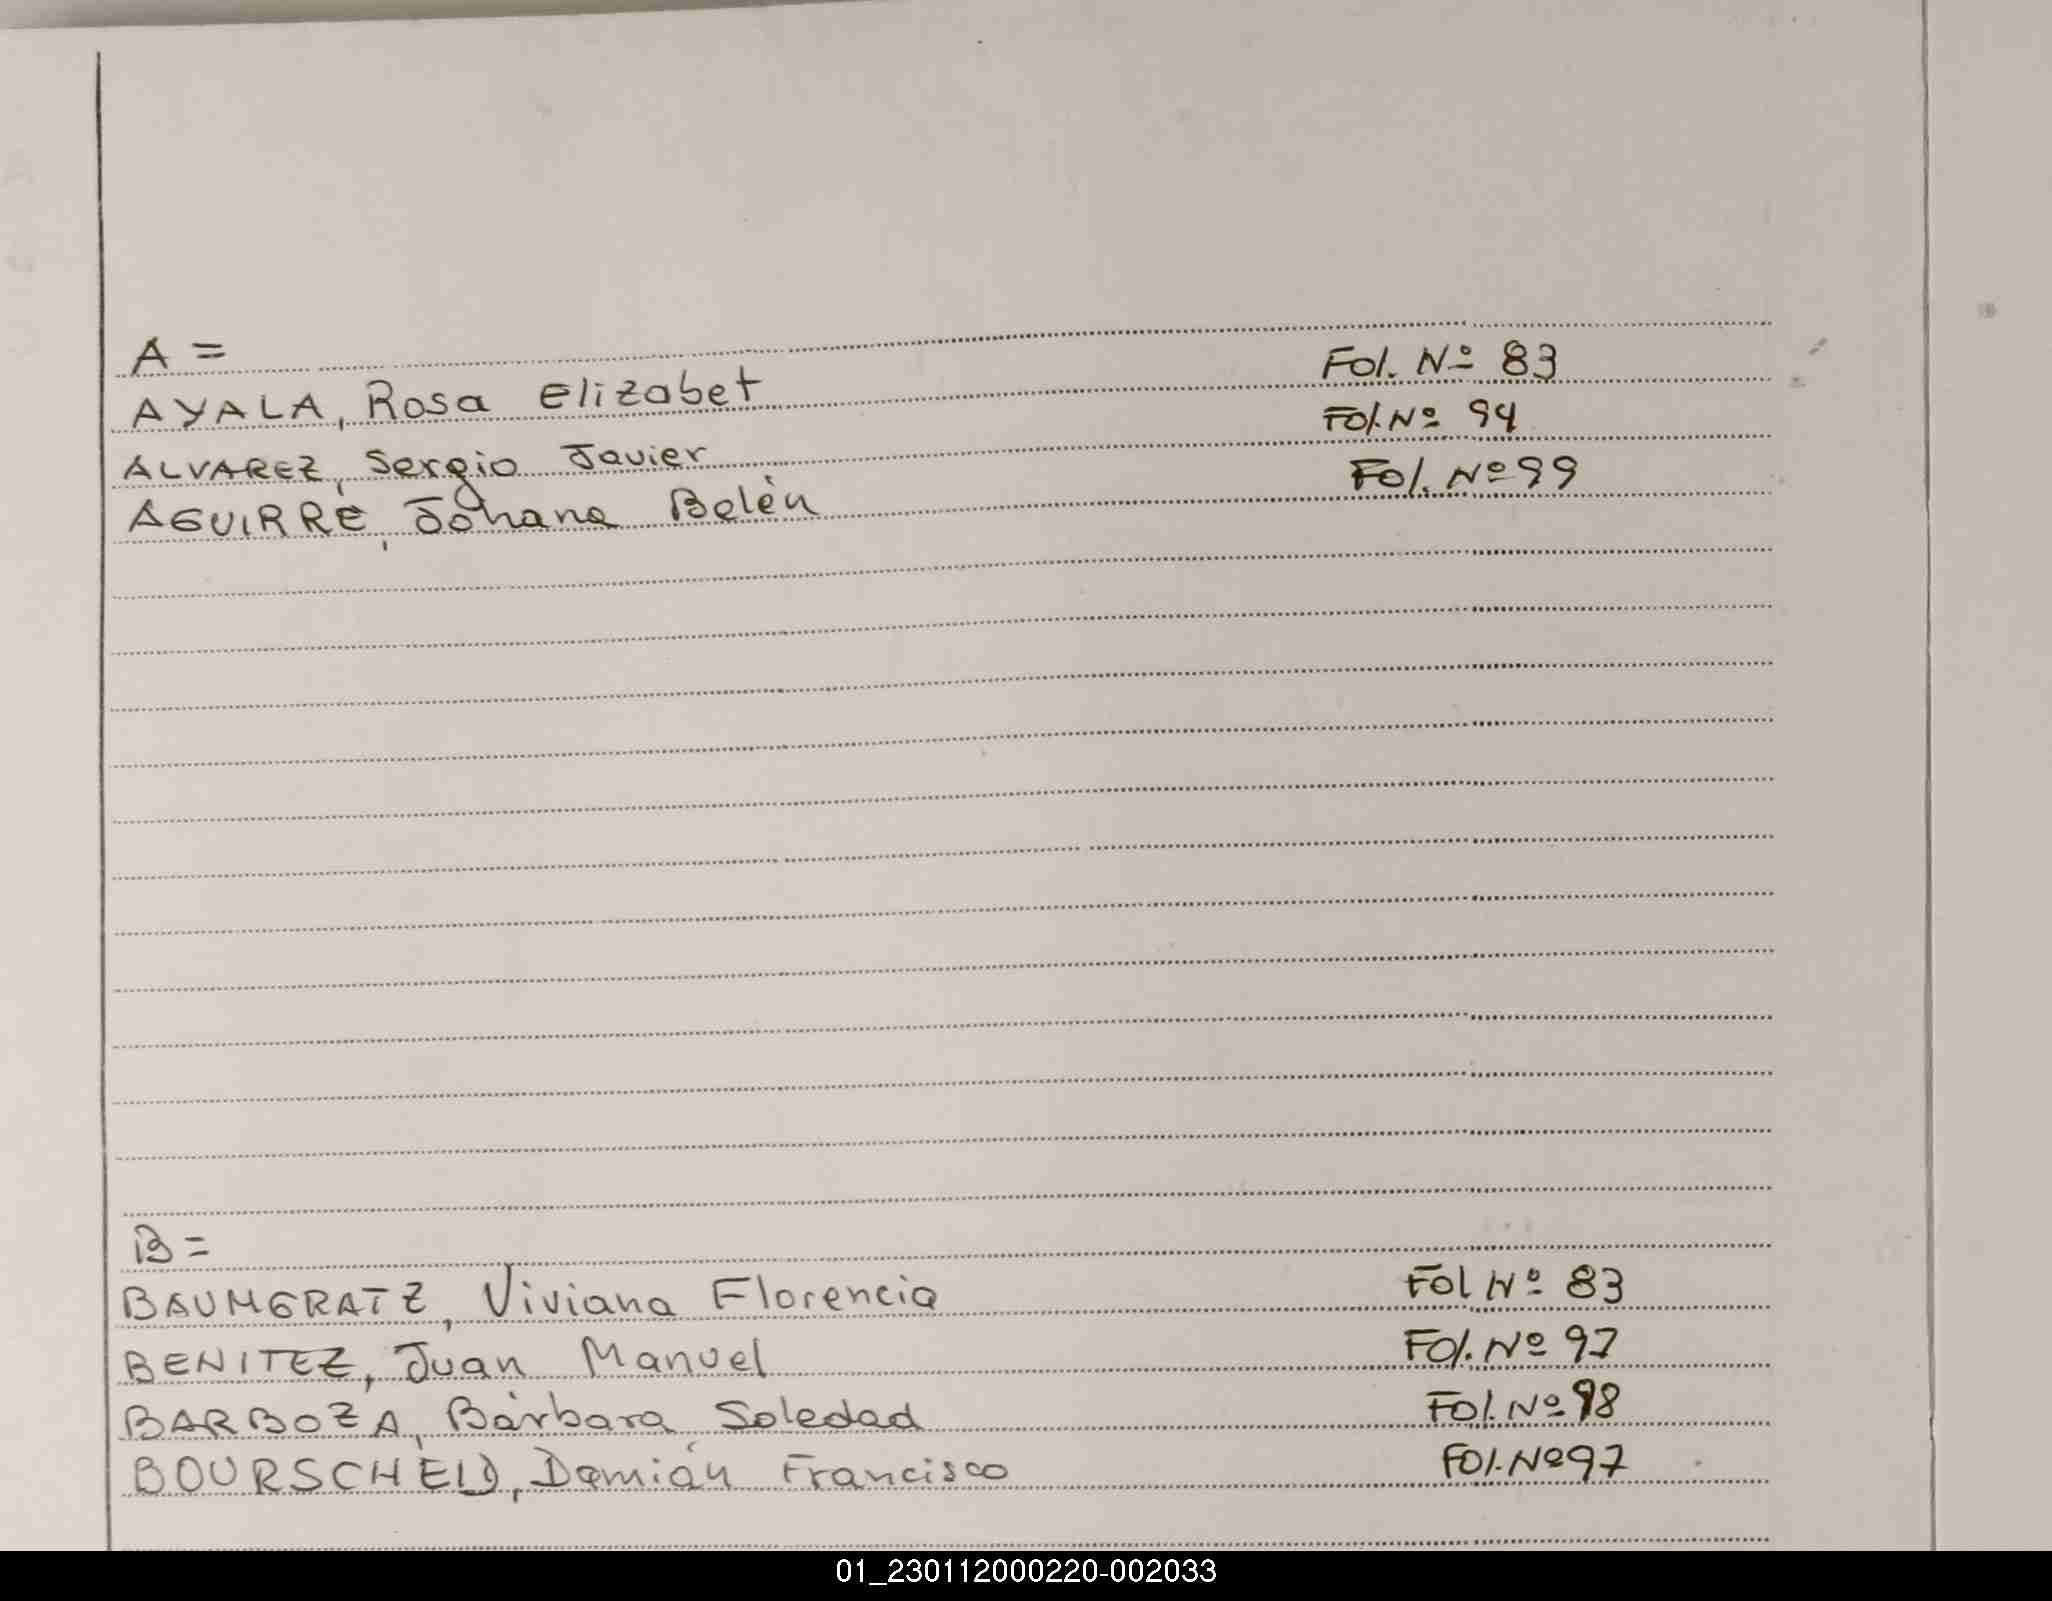 A =
AYALA, Rosa Elizabet Fol. Nº 83
ALVAREZ, Sergio Javier Fol. Nº 94
AGUIRRE, Johana Belén Fol. Nº 99
B =
BAUMGRATZ, Viviana Florencia Fol Nº 83
BENITEZ, Juan Manuel Fol. Nº 97
BARBOZA, Bárbara Soledad Fol. Nº 98
BOURSCHEID, Damián Francisco Fol. Nº 97
01_230112000220-002033